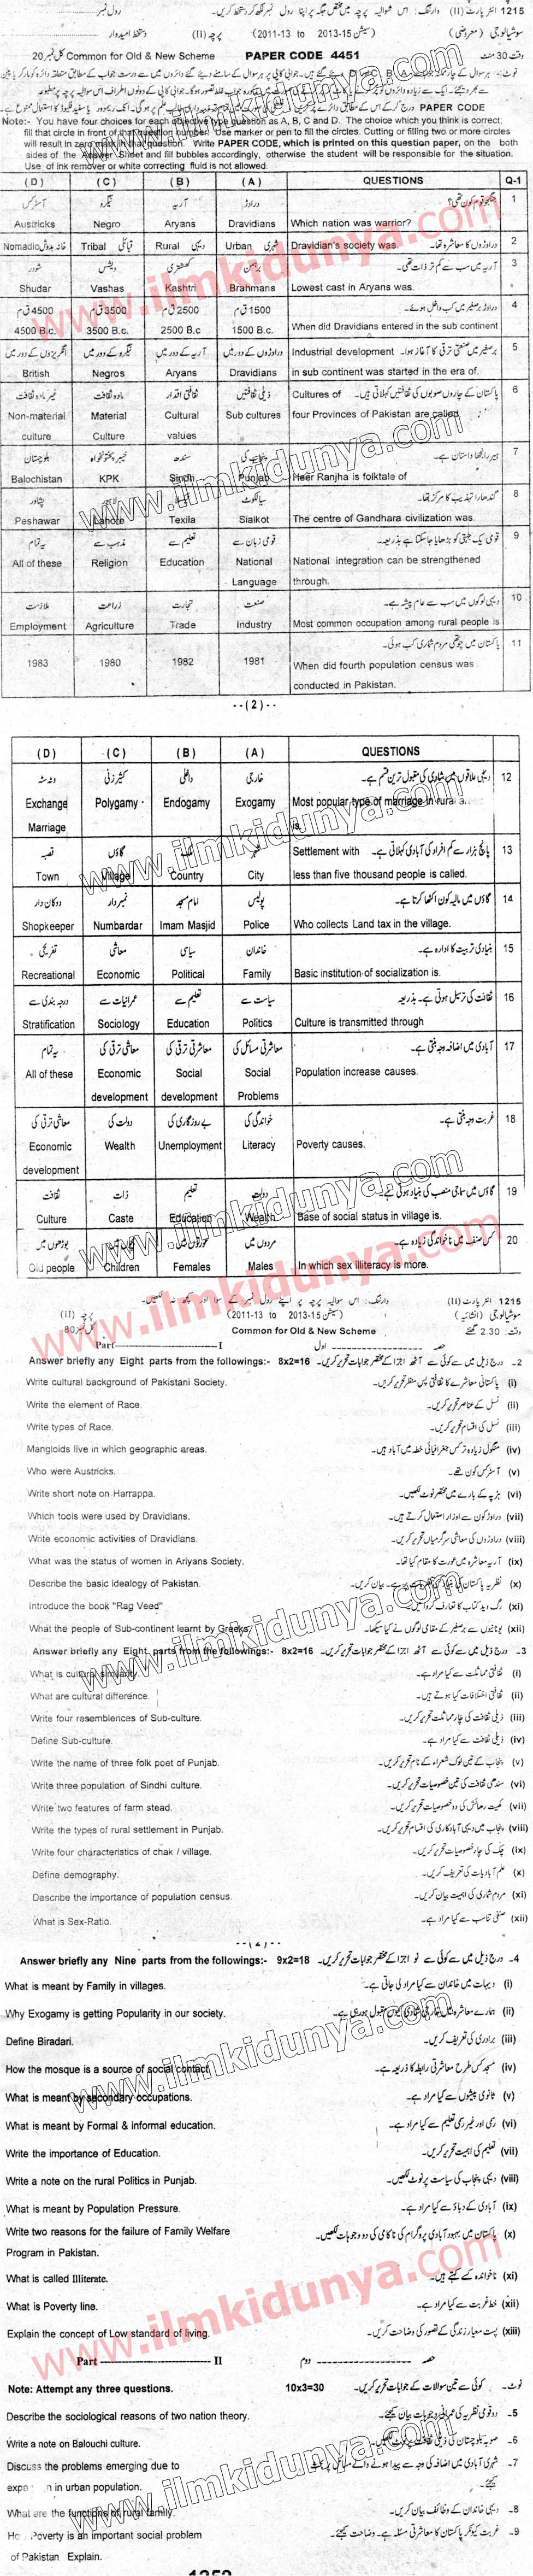 1215 انٹر پارٹ (II) وارننگ: اس سوالیہ پرچہ میں مختص جگہ پر اپنا رول نمبر لکھ کر دستخط کریں۔ رول نمبر
سوشیالوجی (معروضی) (سیشن 2013-15 to 2011-13) پرچہ (II) دستخط امیدوار
وقت 30 منٹ PAPER CODE 4451 Common for Old & New Scheme کل نمبر 20
Note:- You have four choices for each objective type question as A, B, C and D. The choice which you think is correct;
fill that circle in front of that question number. Use marker or pen to fill the circles. Cutting or filling two or more circles
will result in zero mark in that question. Write PAPER CODE, which is printed on this question paper, on the both
sides of the Answer Sheet and fill bubbles accordingly, otherwise the student will be responsible for the situation.
Use of ink remover or white correcting fluid is not allowed.
(D) (C) (B) (A) QUESTIONS Q-1
آسٹرکس نیگرو آریہ دراوڑ جنگجو قوم کون تھی؟ 1
Austricks Negro Aryans Dravidians Which nation was warrior?
خانہ بدوش Nomadic قبائلی Tribal دیہی Rural شہری Urban دراوڑوں کا معاشرہ تھا۔ Dravidian's society was. 2
شودر ویش کھشتری برہمن آریہ میں سب سے کم تر ذات تھی۔ 3
Shudar Vashas Kashtri Brahmans Lowest cast in Aryans was.
4500 ق م 3500 ق م 2500 ق م 1500 ق م دراوڑ برصغیر میں کب داخل ہوئے۔ 4
4500 B.c. 3500 B.C. 2500 B.c 1500 B.c. When did Dravidians entered in the sub continent
انگریزوں کے دور میں نیگرو کے دور میں آریہ کے دور میں دراوڑوں کے دور میں Industrial development برصغیر میں صنعتی ترقی کا آغاز ہوا۔ 5
British Negros Aryans Dravidians in sub continent was started in the era of.
غیر مادہ ثقافت مادہ ثقافت ثقافتی اقدار ذیلی ثقافتیں Cultures of پاکستان کے چاروں صوبوں کی ثقافتیں کہلاتی ہیں۔ 6
Non-material Material Cultural Sub cultures four Provinces of Pakistan are called.
culture Culture values
بلوچستان خیبر پختونخواہ سندھ پنجاب کی ہیر رانجھا داستان ہے۔ 7
Balochistan KPK Sindh Punjab Heer Ranjha is folktale of
پشاور لاہور ٹیکسلا سیالکوٹ گندھارا تہذیب کا مرکز تھا۔ 8
Peshawar Lahore Texila Sialkot The centre of Gandhara civilization was.
یہ تمام مذہب سے تعلیم سے قومی زبان سے قومی یک جہتی کو بڑھایا جاسکتا ہے بذریعہ۔ 9
All of these Religion Education National National integration can be strengthened
Language through.
ملازمت زراعت تجارت صنعت دیہی لوگوں میں سب سے عام پیشہ ہے۔ 10
Employment Agriculture Trade Industry Most common occupation among rural people is
پاکستان میں چوتھی مردم شماری کب ہوئی۔ 11
1983 1980 1982 1981 When did fourth population census was
conducted in Pakistan.
--(2)--
(D) (C) (B) (A) QUESTIONS
وٹہ سٹہ کثیر زنی داخلی خارجی دیہی علاقوں میں شادی کی مقبول ترین قسم ہے۔ 12
Exchange Polygamy Endogamy Exogamy Most popular type of marriage in rural areas
Marriage is.
قصبہ گاؤں ملک شہر Settlement with پانچ ہزار سے کم افراد کی آبادی کہلاتی ہے۔ 13
Town Village Country City less than five thousand people is called.
دوکان دار نمبردار امام مسجد پولیس گاؤں میں مالیہ کون اکٹھا کرتا ہے۔ 14
Shopkeeper Numbardar Imam Masjid Police Who collects Land tax in the village.
تفریحی معاشی سیاسی خاندان بنیادی تربیت کا ادارہ ہے۔ 15
Recreational Economic Political Family Basic institution of socialization is.
درجہ بندی سے عمرانیات سے تعلیم سے سیاست سے ثقافت کی ترسیل ہوتی ہے۔ بذریعہ 16
Stratification Sociology Education Politics Culture is transmitted through
یہ تمام معاشی ترقی کی معاشرتی ترقی کی معاشرتی مسائل کی آبادی میں اضافہ وجہ بنتی ہے۔ 17
All of these Economic Social Social Population increase causes.
development development Problems
معاشی ترقی کی دولت کی بے روزگاری کی خواندگی کی غربت وجہ بنتی ہے۔ 18
Economic Wealth Unemployment Literacy Poverty causes.
development
ثقافت ذات تعلیم دولت گاؤں میں سماجی منصب کی بنیاد ہوتی ہے۔ 19
Culture Caste Education Wealth Base of social status in village is.
بوڑھوں میں بچوں میں عورتوں میں مردوں میں کس صنف میں ناخواندگی زیادہ ہے۔ 20
Old people Children Females Males In which sex illiteracy is more.
1215 انٹر پارٹ (II) وارننگ: اس سوالیہ پرچہ پر اپنے رول نمبر کے سوا اور کچھ نہ لکھیں۔
سوشیالوجی (انشائیہ) (سیشن 2013-15 to 2011-13) پرچہ (II)
وقت 2.30 گھنٹے Common for Old & New Scheme کل نمبر 80
Part---I حصہ --- اول
Answer briefly any Eight parts from the followings:- 8x2=16 2- درج ذیل میں سے کوئی سے آٹھ اجزا کے مختصر جوابات تحریر کریں۔
Write cultural background of Pakistani Society. (i) پاکستانی معاشرے کا ثقافتی پس منظر تحریر کریں۔
Write the element of Race. (ii) نسل کے عناصر تحریر کریں۔
Write types of Race. (iii) نسل کی اقسام تحریر کریں۔
Mangloids live in which geographic areas. (iv) منگول زیادہ تر کس جغرافیائی خطہ میں آباد ہیں۔
Who were Austricks. (v) آسٹرکس کون تھے۔
Write short note on Harrappa. (vi) ہڑپہ کے بارے میں مختصر نوٹ لکھیں۔
Which tools were used by Dravidians. (vii) دراوڑ کون سے اوزار استعمال کرتے ہیں۔
Write economic activities of Dravidians. (viii) دراوڑوں کی معاشی سرگرمیاں تحریر کریں۔
What was the status of women in Ariyans Society. (ix) آریہ معاشرہ میں عورت کا مقام کیا تھا۔
Describe the basic idealogy of Pakistan. (x) نظریہ پاکستان کی بنیاد کن نظریات پر ہے۔ بیان کریں۔
Introduce the book "Rag Veed" (xi) رگ وید کتاب کا تعارف کروائیں۔
What the people of Sub-continent learnt by Greeks. (xii) یونانیوں سے برصغیر کے مقامی لوگوں نے کیا سیکھا۔
Answer briefly any Eight parts from the followings:- 8x2=16 3- درج ذیل میں سے کوئی سے آٹھ اجزا کے مختصر جوابات تحریر کریں۔
What is cultural similarity. (i) ثقافتی مماثلت سے کیا مراد ہے۔
What are cultural difference. (ii) ثقافتی اختلافات کیا ہوتے ہیں۔
Write four resemblences of Sub-culture. (iii) ذیلی ثقافت کی چار مماثلت تحریر کریں۔
Define Sub-culture. (iv) ذیلی ثقافت سے کیا مراد ہے۔
Write the name of three folk poet of Punjab. (v) پنجاب کے تین لوک شعراء کے نام تحریر کریں۔
Write three population of Sindhi culture. (vi) سندھی ثقافت کی تین خصوصیات تحریر کریں۔
Write two features of farm stead. (vii) کھیت رہائش کی دو خصوصیات تحریر کریں۔
Write the types of rural settlement in Punjab. (viii) پنجاب میں دیہی آبادکاری کی اقسام تحریر کریں۔
Write four characteristics of chak / village. (ix) چک کی چار خصوصیات تحریر کریں۔
Define demography. (x) علم آبادیات کی تعریف کریں۔
Describe the importance of population census. (xi) مردم شماری کی اہمیت بیان کریں۔
What is Sex-Ratio. (xii) صنفی تناسب سے کیا مراد ہے۔
Answer briefly any Nine parts from the followings:- 9x2=18 4- درج ذیل میں سے کوئی سے نو اجزا کے مختصر جوابات تحریر کریں۔
What is meant by Family in villages. (i) دیہات میں خاندان سے کیا مراد لی جاتی ہے۔
Why Exogamy is getting Popularity in our society. (ii) ہمارے معاشرہ میں خارجی شادی کیوں مقبول ہو رہی ہے۔
Define Biradari. (iii) برادری کی تعریف کریں۔
How the mosque is a source of social contact. (iv) مسجد کس طرح معاشرتی رابطہ کا ذریعہ ہے۔
What is meant by secondary occupations. (v) ثانوی پیشوں سے کیا مراد ہے۔
What is meant by Formal & informal education. (vi) رسمی اور غیر رسمی تعلیم سے کیا مراد ہے۔
Write the importance of Education. (vii) تعلیم کی اہمیت تحریر کریں۔
Write a note on the rural Politics in Punjab. (viii) دیہی پنجاب کی سیاست پر نوٹ لکھیں۔
What is meant by Population Pressure. (ix) آبادی کے دباؤ سے کیا مراد ہے۔
Write two reasons for the failure of Family Welfare (x) پاکستان میں بہبود آبادی پروگرام کی ناکامی کی دو وجوہات لکھیں۔
Program in Pakistan.
What is called Illiterate. (xi) ناخواندہ کسے کہتے ہیں۔
What is Poverty line. (xii) خط غربت سے کیا مراد ہے۔
Explain the concept of Low standard of living. (xiii) پست معیار زندگی کے تصور کی وضاحت کریں۔
Part --- II حصہ --- دوم
Note: Attempt any three questions. 10x3=30 نوٹ۔ کوئی سے تین سوالات کے جوابات تحریر کریں۔
Describe the sociological reasons of two nation theory. 5- دو قومی نظریہ کی عمرانی وجوہات بیان کیجئے۔
Write a note on Balouchi culture. 6- صوبہ بلوچستان کی ذیلی ثقافت پر نوٹ لکھیں۔
Discuss the problems emerging due to 7- شہری آبادی میں اضافہ کی وجہ سے پیدا ہونے والے مسائل پر بحث
in urban population. کیجئے۔
What are the functions of rural family. 8- دیہی خاندان کے وظائف بیان کریں۔
How Poverty is an important social problem 9- غربت کیونکر پاکستان کا معاشرتی مسئلہ ہے۔ وضاحت کیجئے۔
of Pakistan Explain.
www.ilmkidunya.com